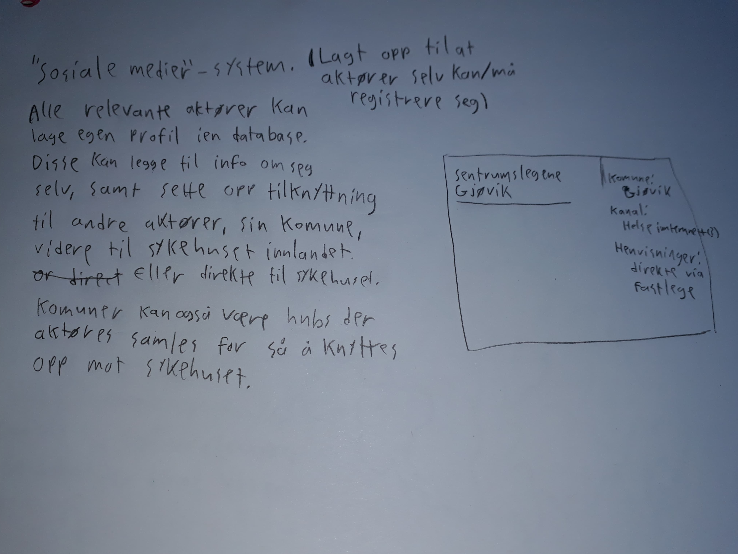 "Sosiale medier"-system. (Lagt opp til at
aktører selv kan/må
registrere seg)
Alle relevante aktører kan
lage egen profil i en database.
Disse kan legge til info om seg
selv, samt sette opp tilknyttning
til andre aktører, sin komune,
videre til sykehuset innlandet.
or direct Eller direkte til sykehuset.
Komuner kan også være hubs der
aktøres samles for så å knyttes
opp mot sykehuset.
Sentrumslegene
Gjøvik
Komune:
Gjøvik
Kanal:
Henvisninger:
direkte via
fastlege